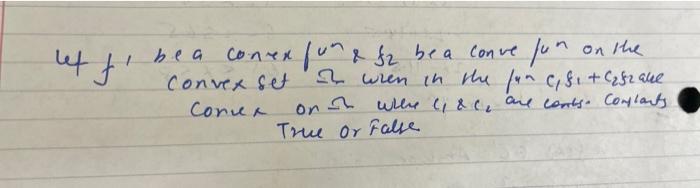 let f1 be a convex fun & f2 be a conve fun on the
convex set Ω wren in the fun c1f1 + c2f2 are
convex on Ω where c1 & c2 are conts. constants
True or False